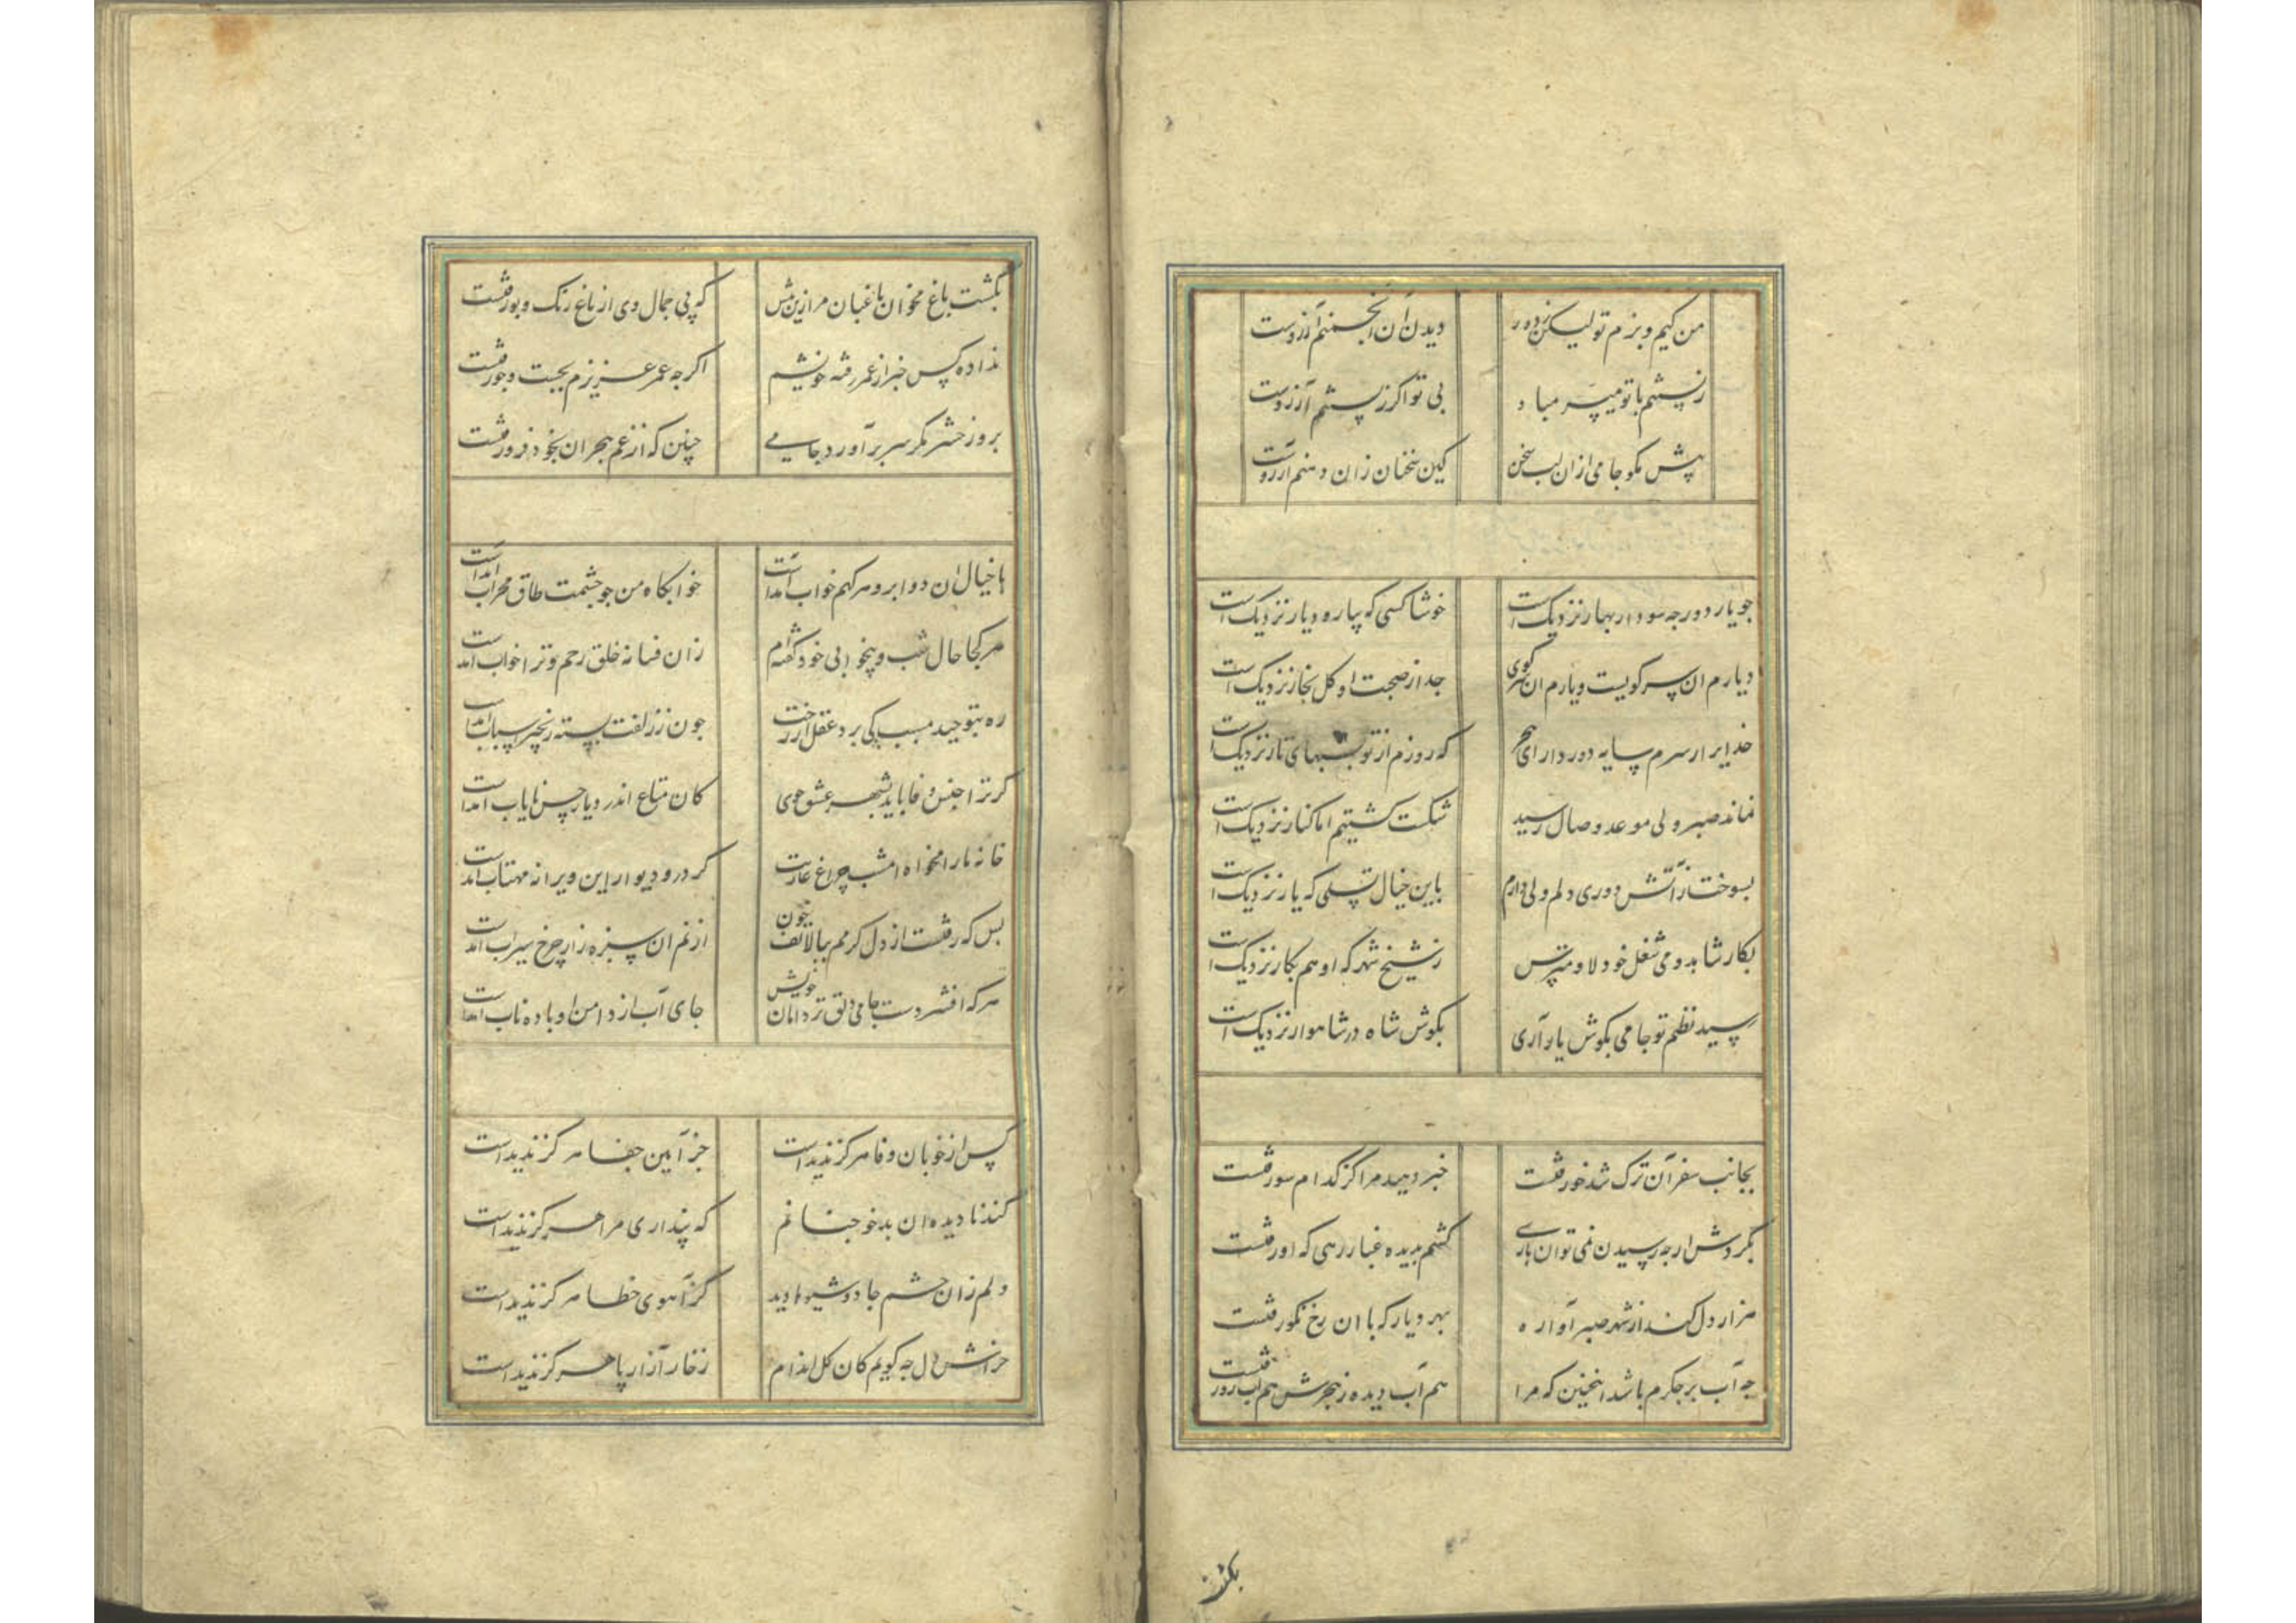 من کیم و بزم تو لیکن ز دور دیدن آن انجمنم آرزوست
زیستنم با تو میسر مباد بی تو اگر زیستنم آرزوست
پیش مکو جامی ازان لب سخن کین سخنان زان دهنم آرزوست
جو یار دور جه سود ار بهار نزدیک است خوشا کسی که بیار و دیار نزدیک است
دیارم ان سر کویست و یارم ان سر کوی جدا ز صحبت او کل بخار نزدیک است
خدایرا ز سرم سایه دور دار ای هجر که روزم از تو بشبهای تار نزدیک است
نماند صبر ولی موعد وصال رسید شکست کشتیم اما کنار نزدیک است
بسوخت ز آتش دوری دلم ولی دارم باین خیال تسلی که یار نزدیک است
بکار شاهد و می شغل خود دلا و مترس ز شیخ شهر که او هم بکار نزدیک است
رسید نظم تو جامی بکوش یار آری بکوش شاه در شاهوار نزدیک است
بجانب سفر آن ترک تندخو رفتست خبر دهید مرا کز کدام سو رفتست
بکردش ار جه رسیدن نمی توان باری کشم بدیده غبار رهی که او رفتست
هزار دل کند از شهر صبر آواره بهر دیار که با ان رخ نکو رفتست
جه آب بر جکرم باشد اینچنین که مرا هم آب دیده ز هجرش هم آب رو رفتست
بکشت
بکشت باغ مخوان باغبان مرا زین بیش که بی جمال وی از باغ رنک و بو رفتست
نداده کس خبر از عمر رفته خویشم اکر جه عمر عزیزم بجست و جو رفتست
بروز حشر مکر سر برآورد جامی جنین که از غم هجران بخود فرو رفتست
با خیال ان دو ابرو هر کهم خواب آمدست خوابکاه من جو جشمت طاق محراب آمدست
هر کجا حال شب و بیخوابی خود کفته ام زان فسانه خلق رحم و ترا خواب آمدست
ره بتوحید مسبب کی برد عقل از رخت جون ز زلفت بسته زنجیر اسباب آمدست
کر ترا جنس وفا باید بشهر عشق جوی کان متاع اندر دیار حسن نایاب آمدست
خانه ما را مخواه امشب چراغ عاریت کز در و دیوار این ویرانه مهتاب آمدست
بس که رفتست از دل کرمم ببالا تف جون ازنم ان سبزه زار چرخ سیراب آمدست
هر که افشرد دست جامی دلق تر دامان خویش جای آب از دامن او باده ناب آمدست
کس از خوبان وفا هرکز ندیدست جز آیین جفا هرکز ندیدست
کند نادیده ان بدخو جنانم که پنداری مرا هرکز ندیدست
دلم زان جشم جادو شیوها دید کز آهوی خطا هرکز ندیدست
خراش دل جه کویم کان کل اندام ز خار آزار پا هرکز ندیدست